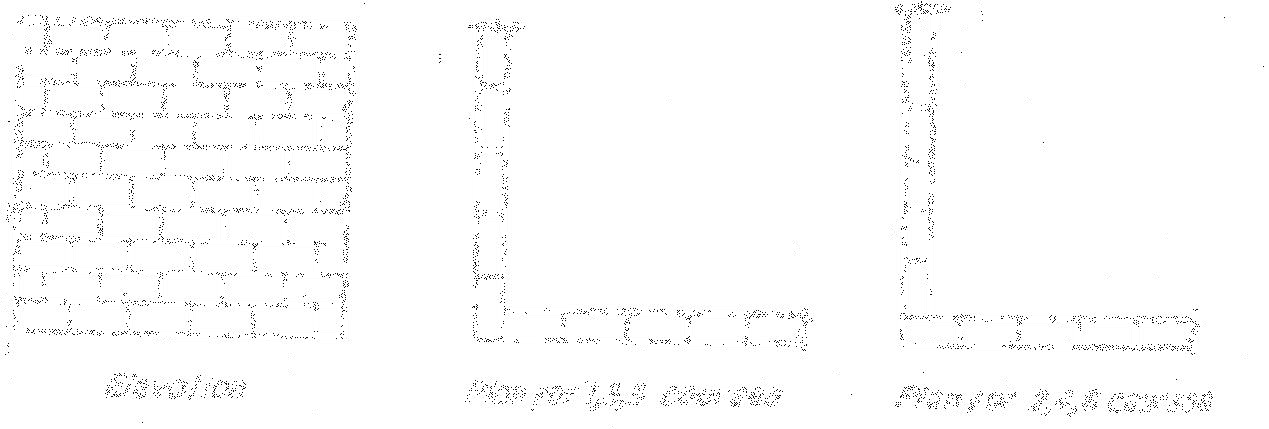 Elevation
Plan for 1,3,5 courses
Plan for 2,4,6 courses